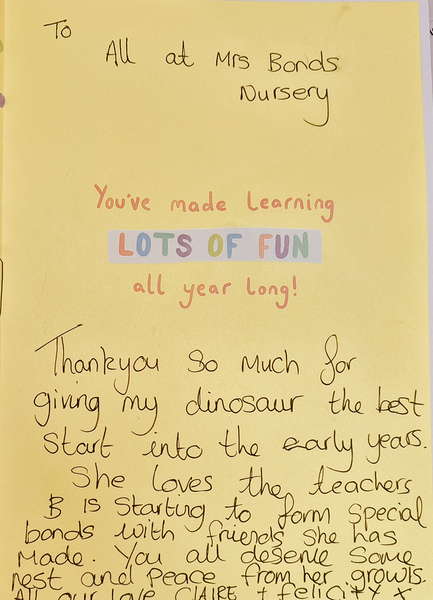 To
All at Mrs Bonds
Nursery
You've made learning
LOTS OF FUN
all year long!
Thankyou So Much for
giving my dinosaur the best
Start into the early years.
She loves the teachers
& is starting to form special
bonds with friends she has
Made. You all deserve Some
rest and Peace from her growls.
All our love CLAIRE + felicity x